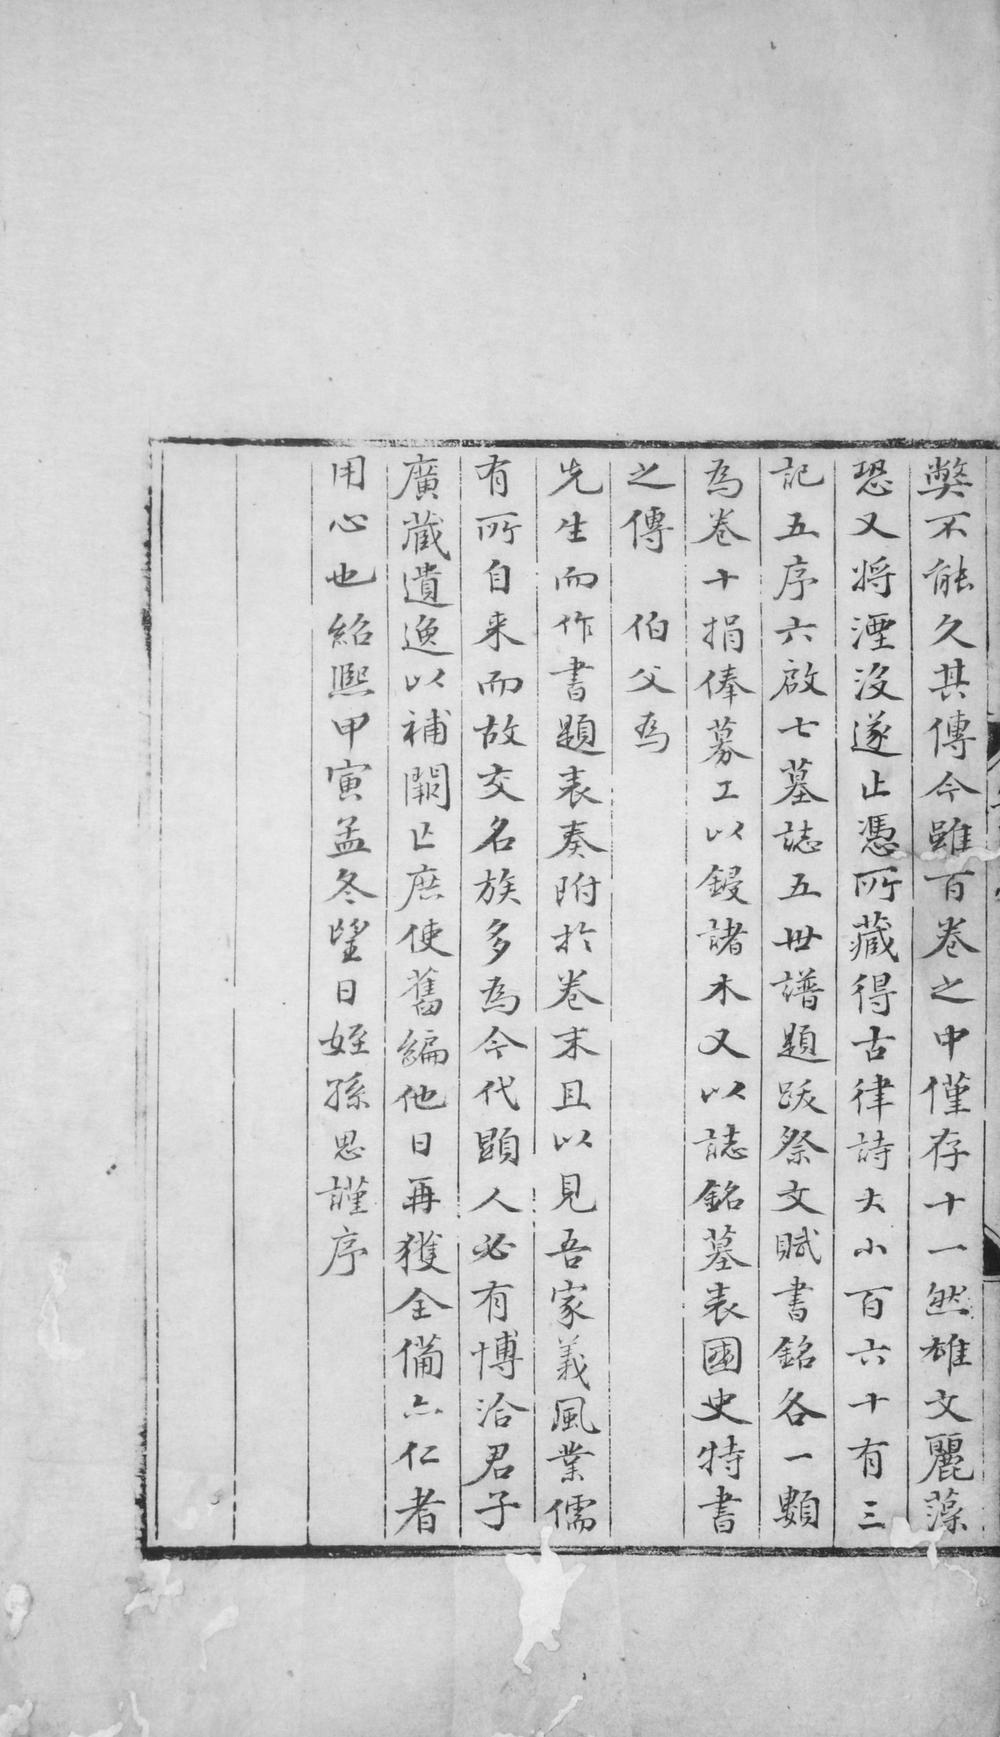 弊不能久其傳今雖百卷之中僅存十一然雄文麗藻
恐又将湮没遂止憑所藏得古律詩大小百六十有三
記五序六啟七墓誌五世譜題跋祭文賦書銘各一類
為卷十捐俸募工以鋟諸木又以誌銘墓表國史特書
之傳　伯父為
先生而作書題表奏附於卷末且以見吾家義風業儒
有所自来而故交名族多為今代顕人必有博洽君子
廣蔵遺逸以補闕亡庶使舊編他日再獲全備亦仁者
用心也紹熙甲寅孟冬望日姪孫思謹序